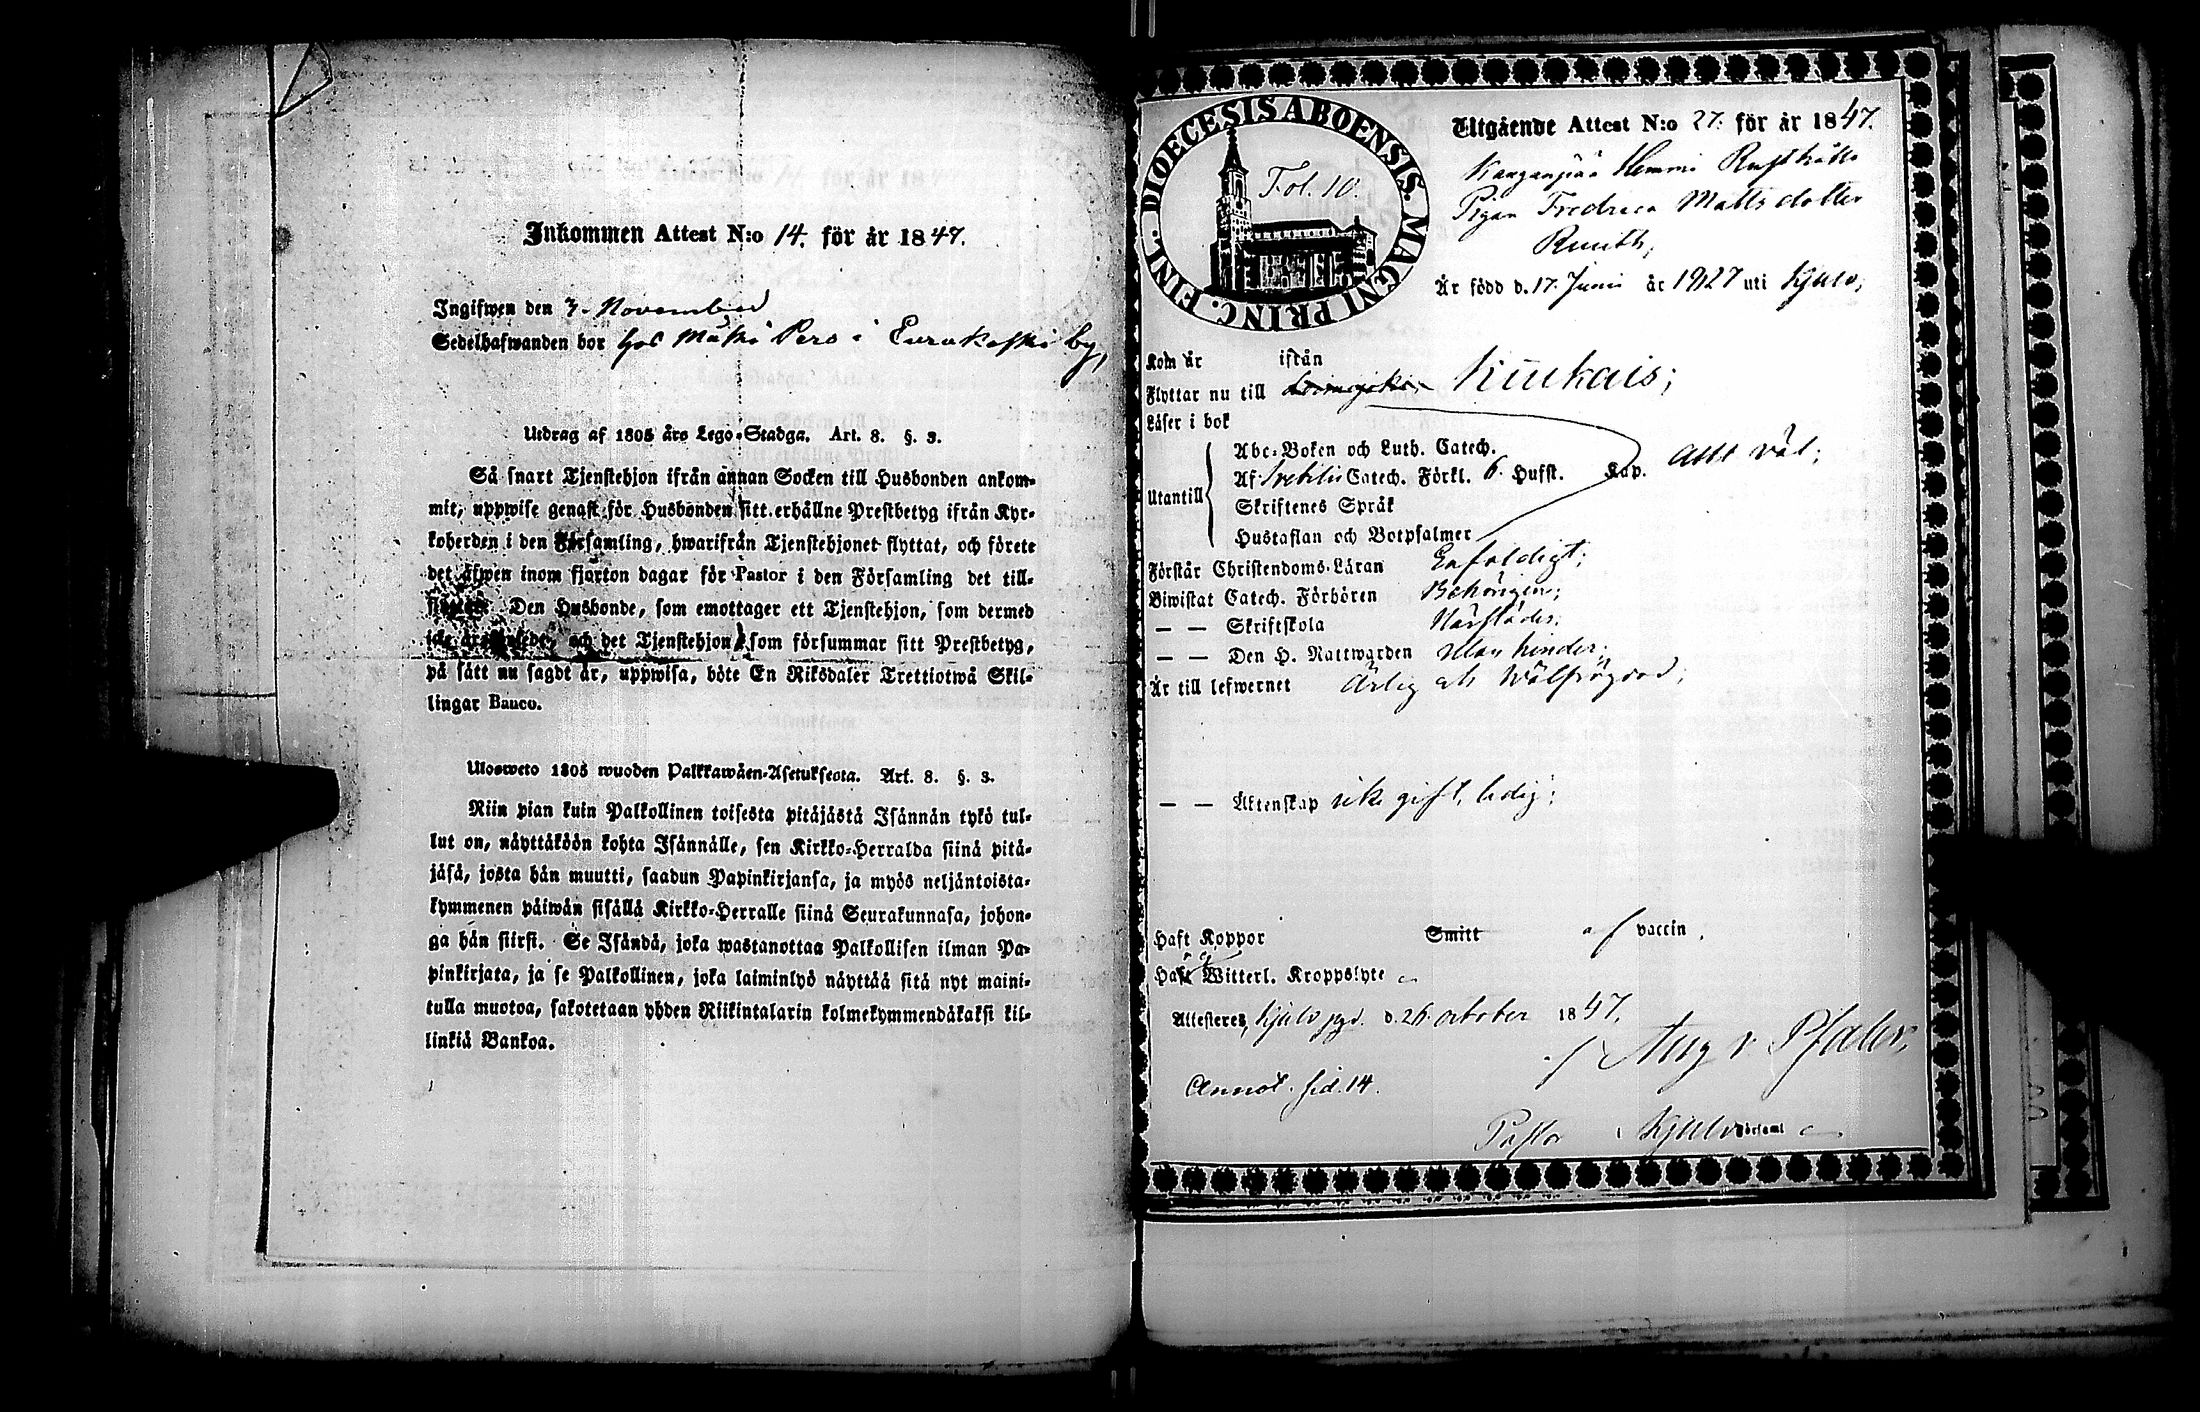 Inkommen Attest N:o 14. för år 1847.
Ingifwen den 3. November
Sedelhafwanden bor hos Mäki Pers i Eurakoski by,
Utdrag af 1805 års Lego-Stadga. Art. 8. §. 3.
Så snart Tjenstehjon ifrån annan Socken till Husbonden ankom-
mit, uppwise genast för Husbonden sitt erhållne Prestbetyg ifrån Kyr-
koherden i den Församling, hwarifrån Tjenstehjonet flyttat, och förete
det äfwen inom fjorton dagar för Pastor i den Församling det till-
Den Husbonde, som emottager ett Tjenstehjon, som dermed
och det Tjenstehjon som försummar sitt Prestbetyg,
på sätt nu sagdt är, uppwisa, böte En Riksdaler Trettiotwå Skil-
lingar Banco.
Ulosweto 1805 wuoden Palkkawäen-Asetuksesta. Art. 8. §. 3.
Niin pian kuin Palkollinen toisesta pitäjästä Isännän tykö tul-
lut on, näyttäköön kohta Isännälle, sen Kirkko-Herralda siinä pitä-
jäsä, josta hän muutti, saadun Papinkirjansa, ja myös neljäntoista-
kymmenen päiwän sisällä Kirkko-Herralle siinä Seurakunnasa, johon-
ga hän siirsi. Se Isändä, joka wastanottaa Palkollisen ilman Pa-
pinkirjata, ja se Palkollinen, joka laiminlyö näyttää sitä nyt maini-
tulla muotoa, sakotetaan yhden Riikintalarin kolmekymmendäkaksi kil-
linkiä Bankoa.
DIOECESIS ABOENSIS. MAGNI PRINC. FINL.
Fol. 10.
Utgående Attest N:o 27. för år 1847.
Hemmi Rusthålls
Pigan Fredrica Mattsdotter
Är född d. 17. Junii år 1827 uti Kjulo;
Kom år ifrån
Flyttar nu till Kiukais;
Läser i bok
Utantill
Abc-Boken och Luth. Catech.
Af Svebilii Catech. Förkl. 6. Hufst. Kap. Allt väl;
Skriftenes Språk
Hustaflan och Botpsalmer
Förstår Christendoms-Läran Enfaldigt;
Biwistat Catech. Förhören Behörigen;
— — Skriftskola Härstädes;
— — Den H. Nattwarden utan hinder;
Är till lefwernet Ärlig och Wälfrägdad;
— — Äktenskap icke gift, ledig;
Haft Koppor Smitt af vaccin.
Witterl. Kroppslyte
Attesteres, Kjulo pgd. d. 26. october 1847.
Aug v. Pfaler,
Annot. sid. 14.
Pastor Kjulo Församl